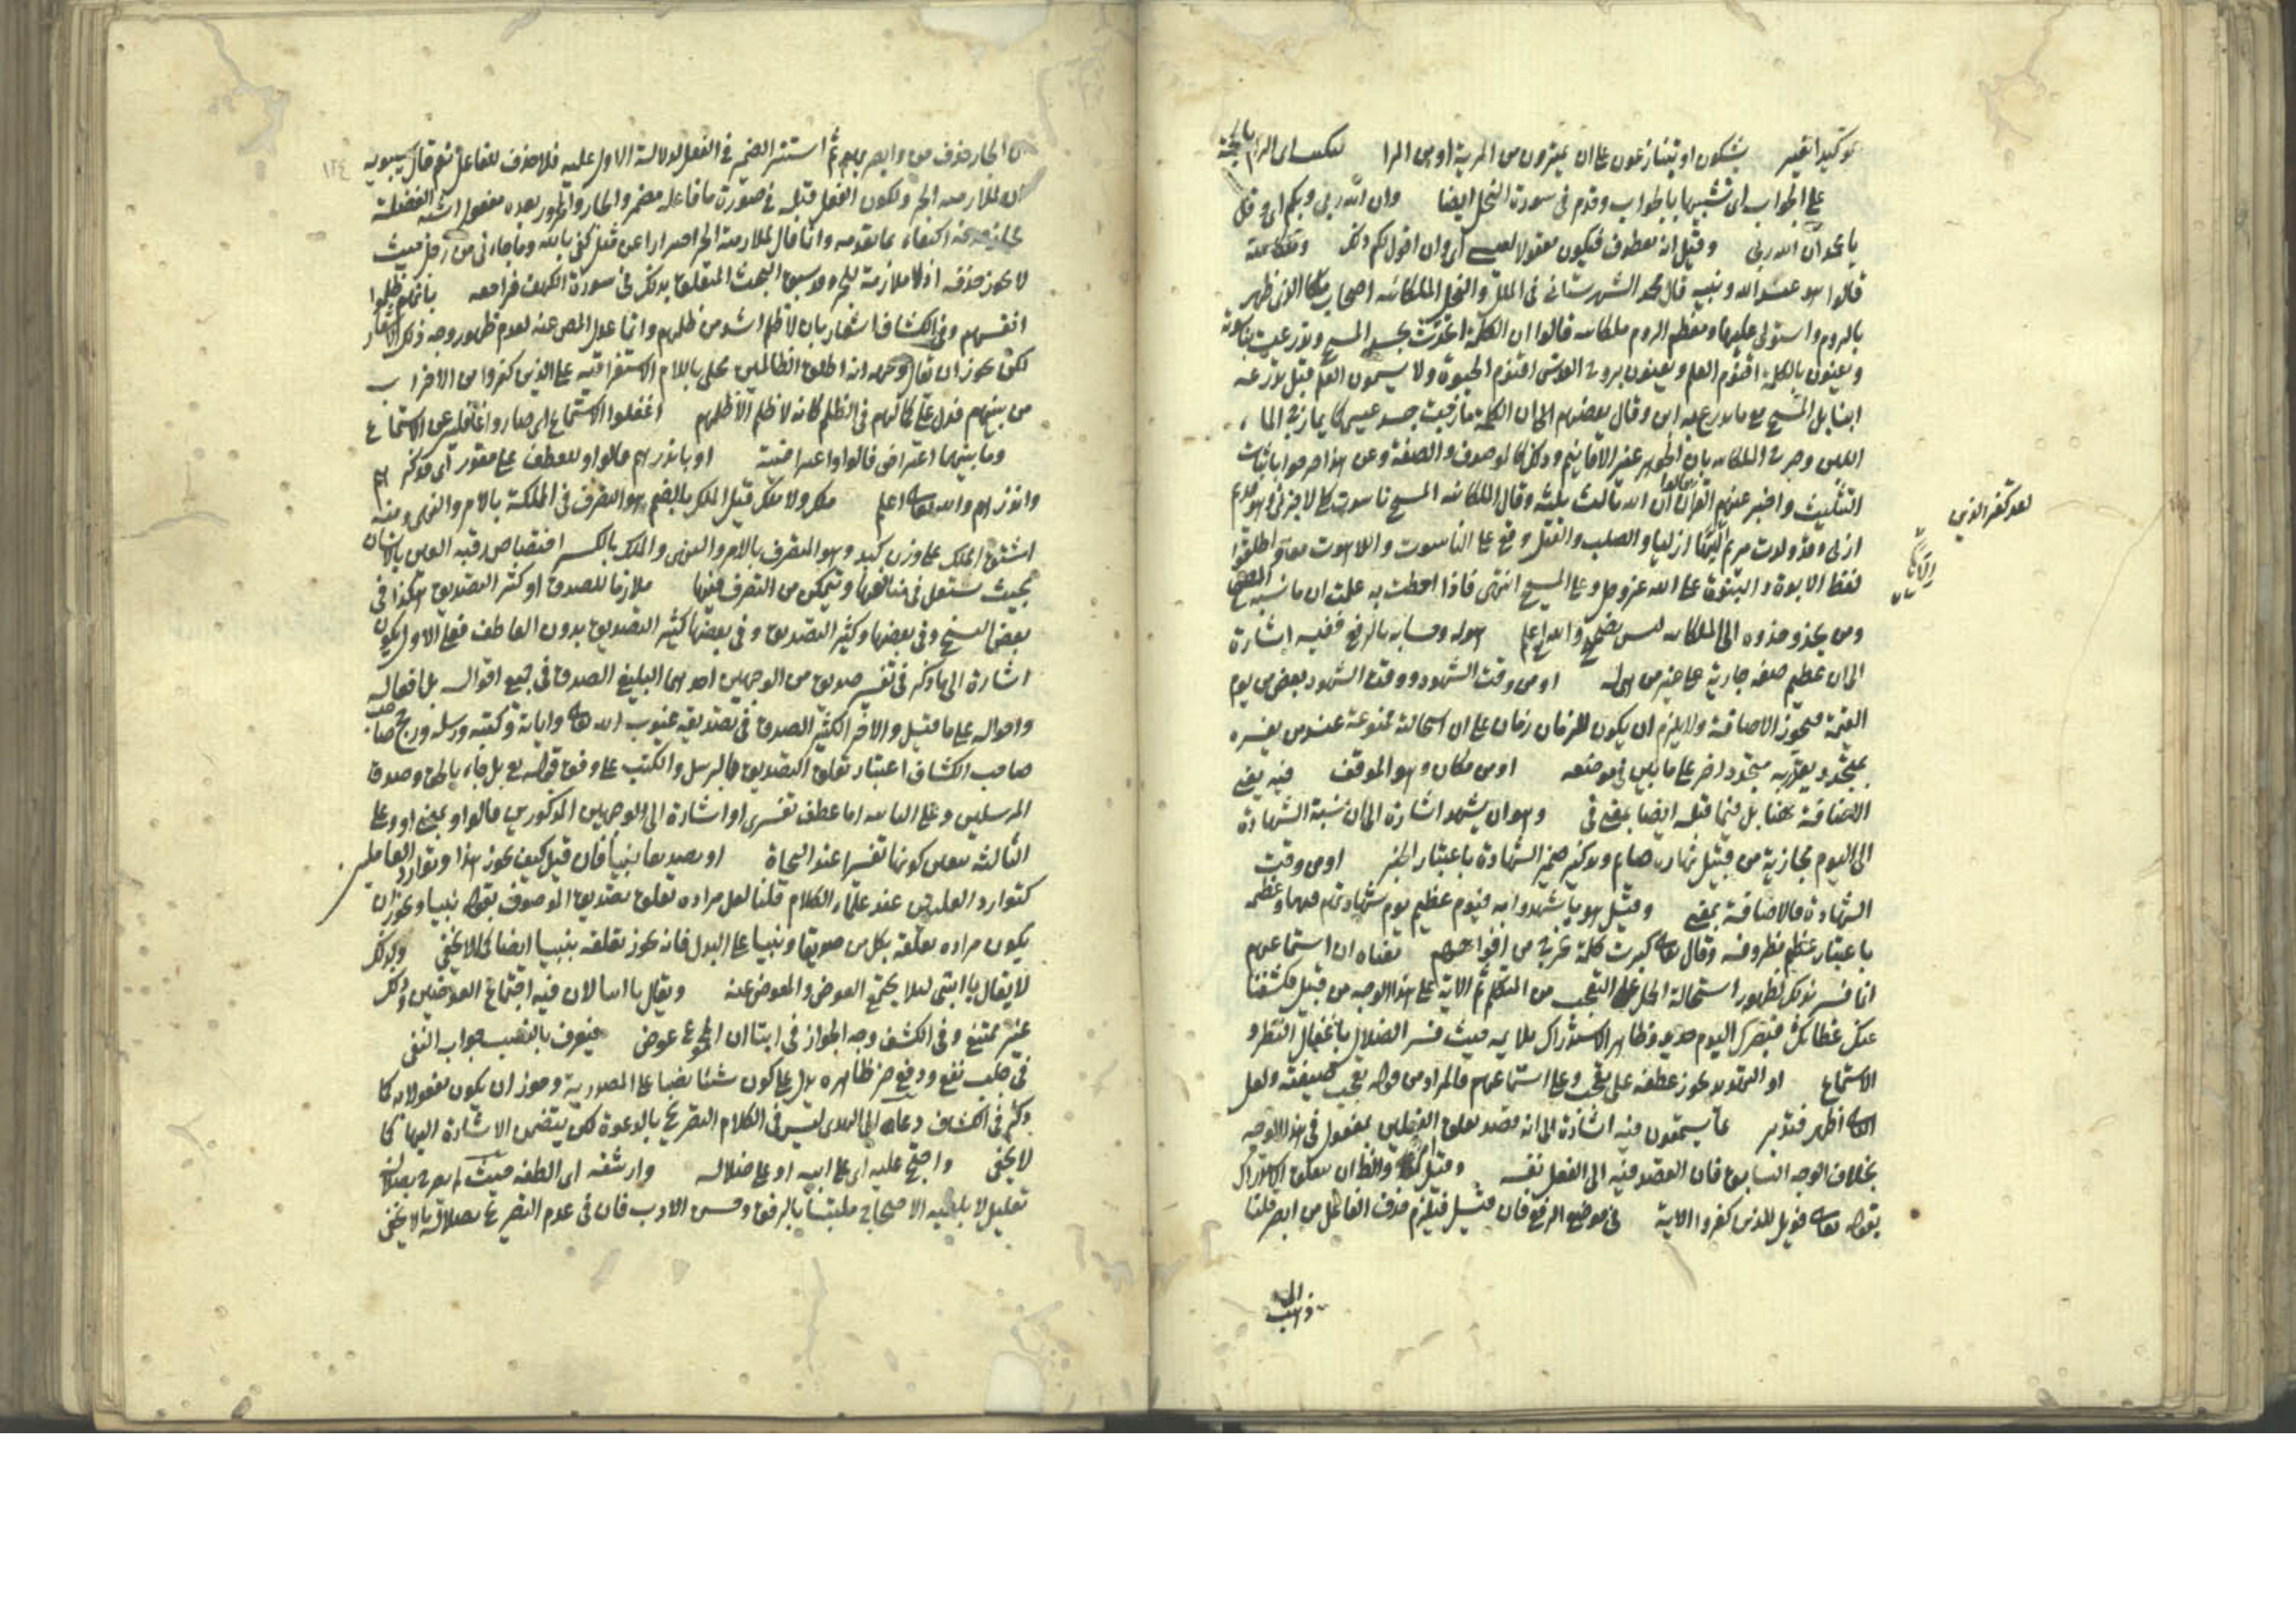 يشكون او يتنازعون على ان يمترون من المرية او من المرا
على الجواب اى تشبيها بالجواب وقدم فى سورة النحل ايضا وان الله ربى وربكم
وقيل انه معطوف فيكون مقولا
قالوا هو عبد الله ونبيه قال محمد الشهرستانى فى الملل والنحل الملكائيه اصحاب ملكا الذى ظهر
بالروم واستولى عليها ومعظم الروم ملكائيه قالوا ان الكلمة اتحدت بجسد المسيح وتدرعت بناسوته
ويعنون بالكلمة اقنوم العلم ويعنون بروح القدس اقنوم الحيوة ولا يسمون العلم قبل تدرعه
ابنا بل المسيح مع ما تدرع به ابن وقال بعضهم ان الكلمة مازجت جسد عيسى كما يمازج الماء
اللبن وصرحت الملكائيه بان الجوهر غير الاقانيم وذلك كالموصوف والصفة وعن هذا صرحوا باثبات
التثليث واخبر عنهم القران ان الله ثالث ثلثة وقال الملكائيه المسيح ناسوت كلى لا جزئى وهو قديم
لقد كفر الذين
ازلى وقد ولدت مريم الها ازليا والصلب والقتل وقع على الناسوت واللاهوت معا واطلقوا
لفظ الابوة والبنوة على الله عز وجل وعلى المسيح انتهى فاذا احطت به علمت ان ما نسبه
ومن يحذو حذوه الى الملكائيه ليس بصحيح والله اعلم هوله وحسابه بالرفع ففيه اشارة
الى ان عظيم صفة جارية على غير من هى له او من وقت الشهود ووقت الشهود بعض من يوم
القيمة فيجوز الاضافة ولا يلزم ان يكون للزمان زمان على ان استحالته ممنوعة عند من يفسره
بمتجدد يقدر به متجدد اخر على ما بين فى موضعه او من مكان وهو الموقف فيه يعنى
الاضافة هنا بل فيما قبله ايضا بمعنى فى وهو ان يشهد اشارة الى ان نسبة الشهادة
الى اليوم مجازية من قبيل نهاره صائم وتذكير ضمير الشهادة باعتبار الخبر او من وقت
الشهادة فالاضافة بمعنى وقيل هو ما شهدوا به فيوم عظيم يوم شهادتهم
باعتبار عظم مظروفه وقال تعالى كبرت كلمة تخرج من افواههم معناه ان استماعهم
انما فسر بذلك لظهور استحالة الحمل على التعجب من المتكلم ثم الاية على هذا الوجه من قبيل فكشفنا
عنك غطاءك فبصرك اليوم حديد وظاهر الاستدراك يلايمه حيث فسر الضلال باغفال النظر و
الاستماع او التهديد يجوز عطفه على تعجب وعلى استماعهم فالمراد من قوله تعجب صيغته ولعل
الثانى اظهر فتدبر عما يسمعون فيه اشارة الى انه قصد تعلق الفعلين بمفعول فى هذا الوجه
بخلاف الوجه السابق فان القصد فيه الى الفعل نفسه
بقوله تعالى فويل للذين كفروا الاية فى موضع الرفع فان قيل فيلزم حذف الفاعل من ابصر قلنا
١٢٤
الجار حذف من وابصر بهم ثم استتر الضمير فى الفعل لدلالة الاول عليه فلا حذف للفاعل نعم قال سيبويه
الجر ولكون الفعل قبله فى صورة ما فاعله مضمر والجار والمجرور بعده مفعول اشبه الفضلة
اكتفاء بما تقدمه وانما قال لملازمته الجر احترازا عن مثل كفى بالله وما جاءنى من رجل حيث
لا يجوز حذفه اذ لا ملازمة للجر وقد سبق البحث المتعلق بذلك فى سورة الكهف فراجعه بانهم ظلموا
انفسهم وفى الكشاف اشعار بان لا ظلم اشد من ظلمهم وانما عدل المص عنه لعدم ظهور وجه ذلك الاشعار
لكن يجوز ان يقال وجهه انه اطلق الظالمين محلى باللام الاستغراقية على الذين كفروا من الاحزاب
من بينهم فدل على كمالهم فى الظلم كانه لا ظلم الا ظلمهم اغفلوا الاستماع اى صاروا غافلين عن الاستماع
وما بينهما اعتراض قالوا واعتراضية او بانذرهم قالوا وللعطف على مقدر اى فذكرهم
وانذرهم والله تعالى اعلم ملك ولا ملك قيل الملك بالضم هو التصرف فى المملكة بالامر والنهى ومنه
اشتق الملك على وزن كبد وهو المتصرف بالامر والنهى والملك بالكسر اختصاص رقبة العين بالانسان
بحيث يستقل فى منافعها ويتمكن من التصرف فيها ملازما للصدق او كثير التصديق هكذا فى
بعض النسخ وفى بعضها وكثير التصديق وفى بعضها كثير التصديق بدون العاطف فعلى الاول يكون
اشارة الى ما ذكر فى تفسير صديق من الوجهين احدهما البليغ الصدق فى جميع اقواله بل افعاله
واحواله على ما قيل والاخر الكثير الصدق فى تصديقه غيوب الله تعالى واياته وكتبه ورسله ورجح صاحب
صاحب الكشاف اعتبار تعلق التصديق بالرسل والكتب على وفق قوله تع بل جاء بالحق وصدق
المرسلين وعلى الثانيه اما عطف تفسيرى او اشارة الى الوجهين المذكورين فالواو بمعنى او وعلى
الثالثه يتعين كونها تفسيرا عند النحاة او بصديقا نبيا فان قيل كيف يجوز هذا وتوارد العاملين
كتوارد العلتين عند علماء الكلام قلنا لعل مراده تعلق بصديق الموصوف بقوله نبيا ويجوز ان
يكون مراده تعلقه بكل من صديقا ونبيا على البدل فانه يجوز تعلقه بنبيا ايضا كما لا يخفى ولذلك
لا يقال يا ابتى لئلا يجتمع العوض والمعوض عنه ويقال يا ابتا لان فيه اجتماع العوضين وذلك
غير ممتنع وفى الكشف وجه الجواز فى ابتا ان المجموع عوض فيعرف بالنصب جواب النفى
فى جلب نفع ودفع ضر ظاهره يدل على كون شيئا نصبا على المصدرية وجوز ان يكون مفعولا به كما
ذكر فى الكشاف دعاه الى الهدى ليس فى الكلام التصريح بالدعوة لكن يتضمن الاشارة اليها كما
لا يخفى واحتج عليه اى على ابيه او على ضلاله وارشقه اى الطفه حيث لم يصرح بضلاله
تعليل ملتبسا بالرفق وحسن الادب فان فى عدم التصريح بضلاله ما لا يخفى